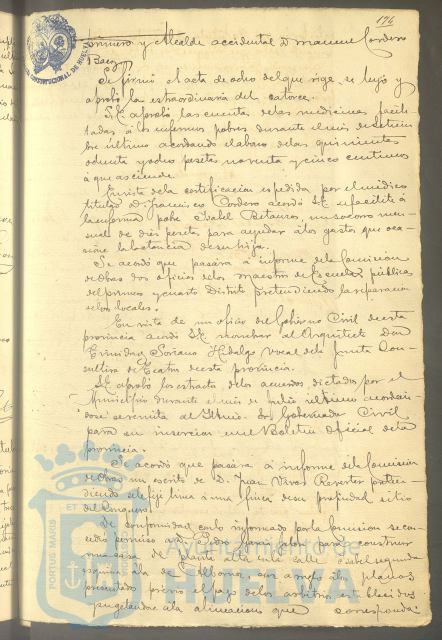 174
primero y Alcalde accidental D. Manuel Cordero
Baez
Se firmó el acta de ocho del que rige, se leyó y
aprobó la estraordinaria del catorce.
Se aprobó las cuentas de las medicinas facili
tadas á los enfermos pobres durante el mes de Setiem
bre último acordando el abono de las quinientas
ochenta y ocho pesetas noventa y cinco centimos
á que asciende.
En vista de la certificacion espedida por el médico
titular D. Francisco Cordero acordó se facilite á
la enferma pobre Isabel un socorro men
sual de diez pesetas para ayudar á los gastos que oca
sione la lactancia de su hija.
Se acordó que pasára á informe de la Comision
de Obras dos oficios de los maestros de Escuelas públicas
del primero y cuarto Distrito pretendiendo la reparacion
de los locales.
En vista de un oficio del Gobierno Civil de esta
provincia acordó nombrar al Arquitecto Don
Trinidad Soriano Hidalgo vocal de la Junta Con
sultiva de Teatros de esta provincia.
Se aprobó los estractos de los acuerdos dictados por el
Municipio durante el mes de Julio último acordán
dose se remita al Gobernador Civil
para su insercion en el Boletin Oficial de la
provincia.
Se acordó que pasára á informe de la Comision
de Obras un escrito de D. Juan Vives Reverter preten
diendo se le fije linea á una finca de su propiedad sitio
del
De conformidad con lo informado por la Comision se con
cedió permiso á D. Pedro para construir
una casa de planta alta en la calle Isabel segunda
esquina á la de con arreglo á los planos
presentados previo el pago de los arbitrios establecidos
sugetandose á la alineacion que corresponda
Ayuntamiento de
HUELVA
PORTUS MARIS